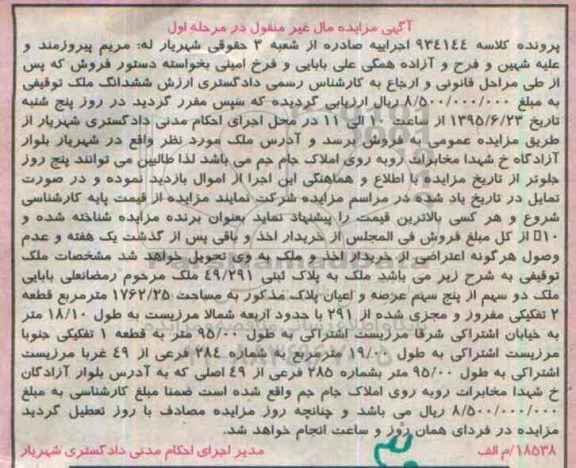 آگهی مزایده مال غیر منقول در مرحله اول
پرونده کلاسه ۹۳٤۱٤٤ اجراییه صادره از شعبه ۳ حقوقی شهریار له: مریم پیروزمند و
علیه شهین و فرح و آزاده همگی علی بابایی و فرخ امینی بخواسته دستور فروش که پس
از طی مراحل قانونی و ارجاع به کارشناس رسمی دادگستری ارزش ششدانگ ملک توقیفی
به مبلغ ۸/۵۰۰/۰۰۰/۰۰۰ ریال ارزیابی گردیده که سپس مقرر گردید در روز پنج شنبه
تاریخ ۱۳۹۵/٦/۲۳ از ساعت ۱۰ الی ۱۱ در محل اجرای احکام مدنی دادگستری شهریار از
طریق مزایده عمومی به فروش برسد و آدرس ملک مورد نظر واقع در شهریار بلوار
آزادگاه خ شهدا مخابرات روبه روی املاک جام جم می باشد لذا طالبین می توانند پنج روز
جلوتر از تاریخ مزایده با اطلاع و هماهنگی این اجرا از اموال بازدید نموده و در صورت
تمایل در تاریخ یاد شده در مراسم مزایده شرکت نمایند مزایده از قیمت پایه کارشناسی
شروع و هر کسی بالاترین قیمت را پیشنهاد نماید بعنوان برنده مزایده شناخته شده و
۱۰▯ از کل مبلغ فروش فی المجلس از خریدار اخذ و باقی پس از گذشت یک هفته و عدم
وصول هرگونه اعتراضی از خریدار اخذ و ملک به وی تحویل خواهد شد مشخصات ملک
توقیفی به شرح زیر می باشد ملک به پلاک ثبتی ٤۹/۲۹۱ ملک مرحوم رمضانعلی بابایی
ملک دو سهم از پنج سهم عرصه و اعیان پلاک مذکور به مساحت ۱۷٦۲/۲۵ مترمربع قطعه
۲ تفکیکی مفروز و مجزی شده از ۲۹۱ با حدود اربعه شمالا مرزیست به طول ۱۸/۱۰ متر
به خیابان اشتراکی شرقا مرزیست اشتراکی به طول ۹۵/۰۰ متر به قطعه ۱ تفکیکی جنوبا
مرزیست اشتراکی به طول ۱۹/۰۰ مترمربع به شماره ۲۸٤ فرعی از ٤۹ غربا مرزیست
اشتراکی به طول ۹۵/۰۰ متر بشماره ۲۸۵ فرعی از ٤۹ اصلی که به آدرس بلوار آزادگان
خ شهدا مخابرات روبه روی املاک جام جم واقع شده است ضمنا مبلغ کارشناسی به مبلغ
۸/۵۰۰/۰۰۰/۰۰۰ ریال می باشد و چنانچه روز مزایده مصادف با روز تعطیل گردید
مزایده در فردای همان روز و ساعت انجام خواهد شد.
۱۸۵۳۸/م الف مدیر اجرای احکام مدنی دادگستری شهریار